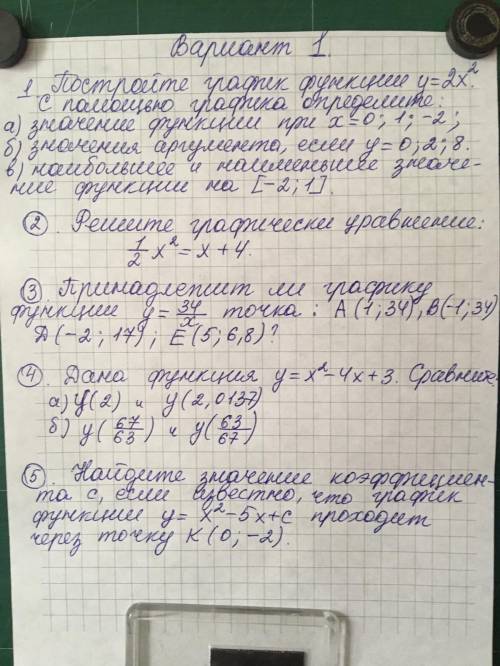 Вариант 1.
1 Постройте график функции y=2x².
С помощью графика определите:
а) значение функции при x=0; 1; -2;
б) значения аргумента, если y=0; 2; 8.
в) наибольшее и наименьшее значе-
ние функции на [-2; 1].
2. Решите графически уравнение:
1/2 x² = x + 4.
3 Принадлежит ли графику
функции y = 34/x точка: А(1; 34), В(-1; 34)
Д(-2; 17); Е(5; 6,8)?
4. Дана функция y=x²-4x+3. Сравните
а) y(2) и y(2,0137)
б) y(67/63) и y(63/67)
5. Найдите значение коэффициен-
та с, если известно, что график
функции y= x²-5x+c проходит
через точку К(0; -2).